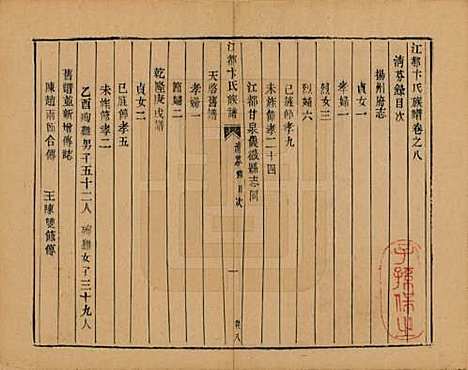 江都卞氏族譜卷之八
清芬錄目次
揚州府志
貞女一
孝婦一
貞女三
烈婦六
已旌節孝九
未旌節孝二十四
江都甘泉儀徵縣志同
江都卞氏族譜 清芬錄目次 一 卷八
天啟舊譜
孝婦一
節婦二
乾隆庚戌譜
貞女二
已旌節孝五
未旌節孝二
乙酉殉難男子五十二人 殉難女子三十九人
舊譜並新增傳誌
陳趙兩節合傳 王陳雙節傳
子孫保之